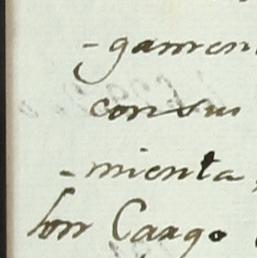 -gamen
con sus
-mienta
por Cargo